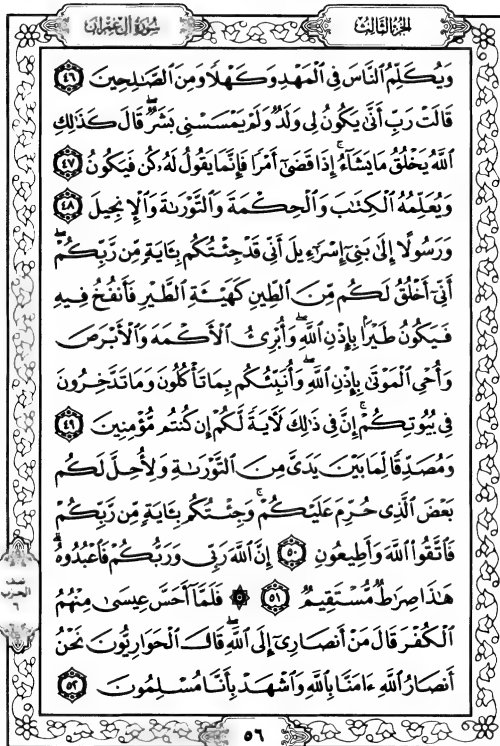 سُورَةُ آلِ عِمْرَانَ
الجُزءُ الثَّالِثُ
وَيُكَلِّمُ النَّاسَ فِي الْمَهْدِ وَكَهْلًا وَمِنَ الصَّالِحِينَ ٤٦
قَالَتْ رَبِّ أَنَّىٰ يَكُونُ لِي وَلَدٌ وَلَمْ يَمْسَسْنِي بَشَرٌ ۖ قَالَ كَذَٰلِكِ
اللَّهُ يَخْلُقُ مَا يَشَاءُ ۚ إِذَا قَضَىٰ أَمْرًا فَإِنَّمَا يَقُولُ لَهُ كُن فَيَكُونُ ٤٧
وَيُعَلِّمُهُ الْكِتَٰبَ وَالْحِكْمَةَ وَالتَّوْرَىٰةَ وَالْإِنجِيلَ ٤٨
وَرَسُولًا إِلَىٰ بَنِي إِسْرَٰءِيلَ أَنِّي قَدْ جِئْتُكُم بِـَٔايَةٍ مِّن رَّبِّكُمْ ۖ
أَنِّي أَخْلُقُ لَكُم مِّنَ الطِّينِ كَهَيْـَٔةِ الطَّيْرِ فَأَنفُخُ فِيهِ
فَيَكُونُ طَيْرًا بِإِذْنِ اللَّهِ ۖ وَأُبْرِئُ الْأَكْمَهَ وَالْأَبْرَصَ
وَأُحْيِ الْمَوْتَىٰ بِإِذْنِ اللَّهِ ۖ وَأُنَبِّئُكُم بِمَا تَأْكُلُونَ وَمَا تَدَّخِرُونَ
فِي بُيُوتِكُمْ ۚ إِنَّ فِي ذَٰلِكَ لَـَٔايَةً لَّكُمْ إِن كُنتُم مُّؤْمِنِينَ ٤٩
وَمُصَدِّقًا لِّمَا بَيْنَ يَدَيَّ مِنَ التَّوْرَىٰةِ وَلِأُحِلَّ لَكُم
بَعْضَ الَّذِي حُرِّمَ عَلَيْكُمْ ۚ وَجِئْتُكُم بِـَٔايَةٍ مِّن رَّبِّكُمْ
فَاتَّقُوا اللَّهَ وَأَطِيعُونِ ٥٠ إِنَّ اللَّهَ رَبِّي وَرَبُّكُمْ فَاعْبُدُوهُ ۗ
هَٰذَا صِرَٰطٌ مُّسْتَقِيمٌ ٥١ ۞ فَلَمَّا أَحَسَّ عِيسَىٰ مِنْهُمُ
الْكُفْرَ قَالَ مَنْ أَنصَارِي إِلَى اللَّهِ ۖ قَالَ الْحَوَارِيُّونَ نَحْنُ
أَنصَارُ اللَّهِ ءَامَنَّا بِاللَّهِ وَاشْهَدْ بِأَنَّا مُسْلِمُونَ ٥٢
نصف
الحزب
٦
٥٦